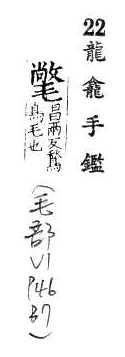 22 龍龕手鑑
氅 昌兩反鶖
鳥毛也
(毛部VI P46 B7)